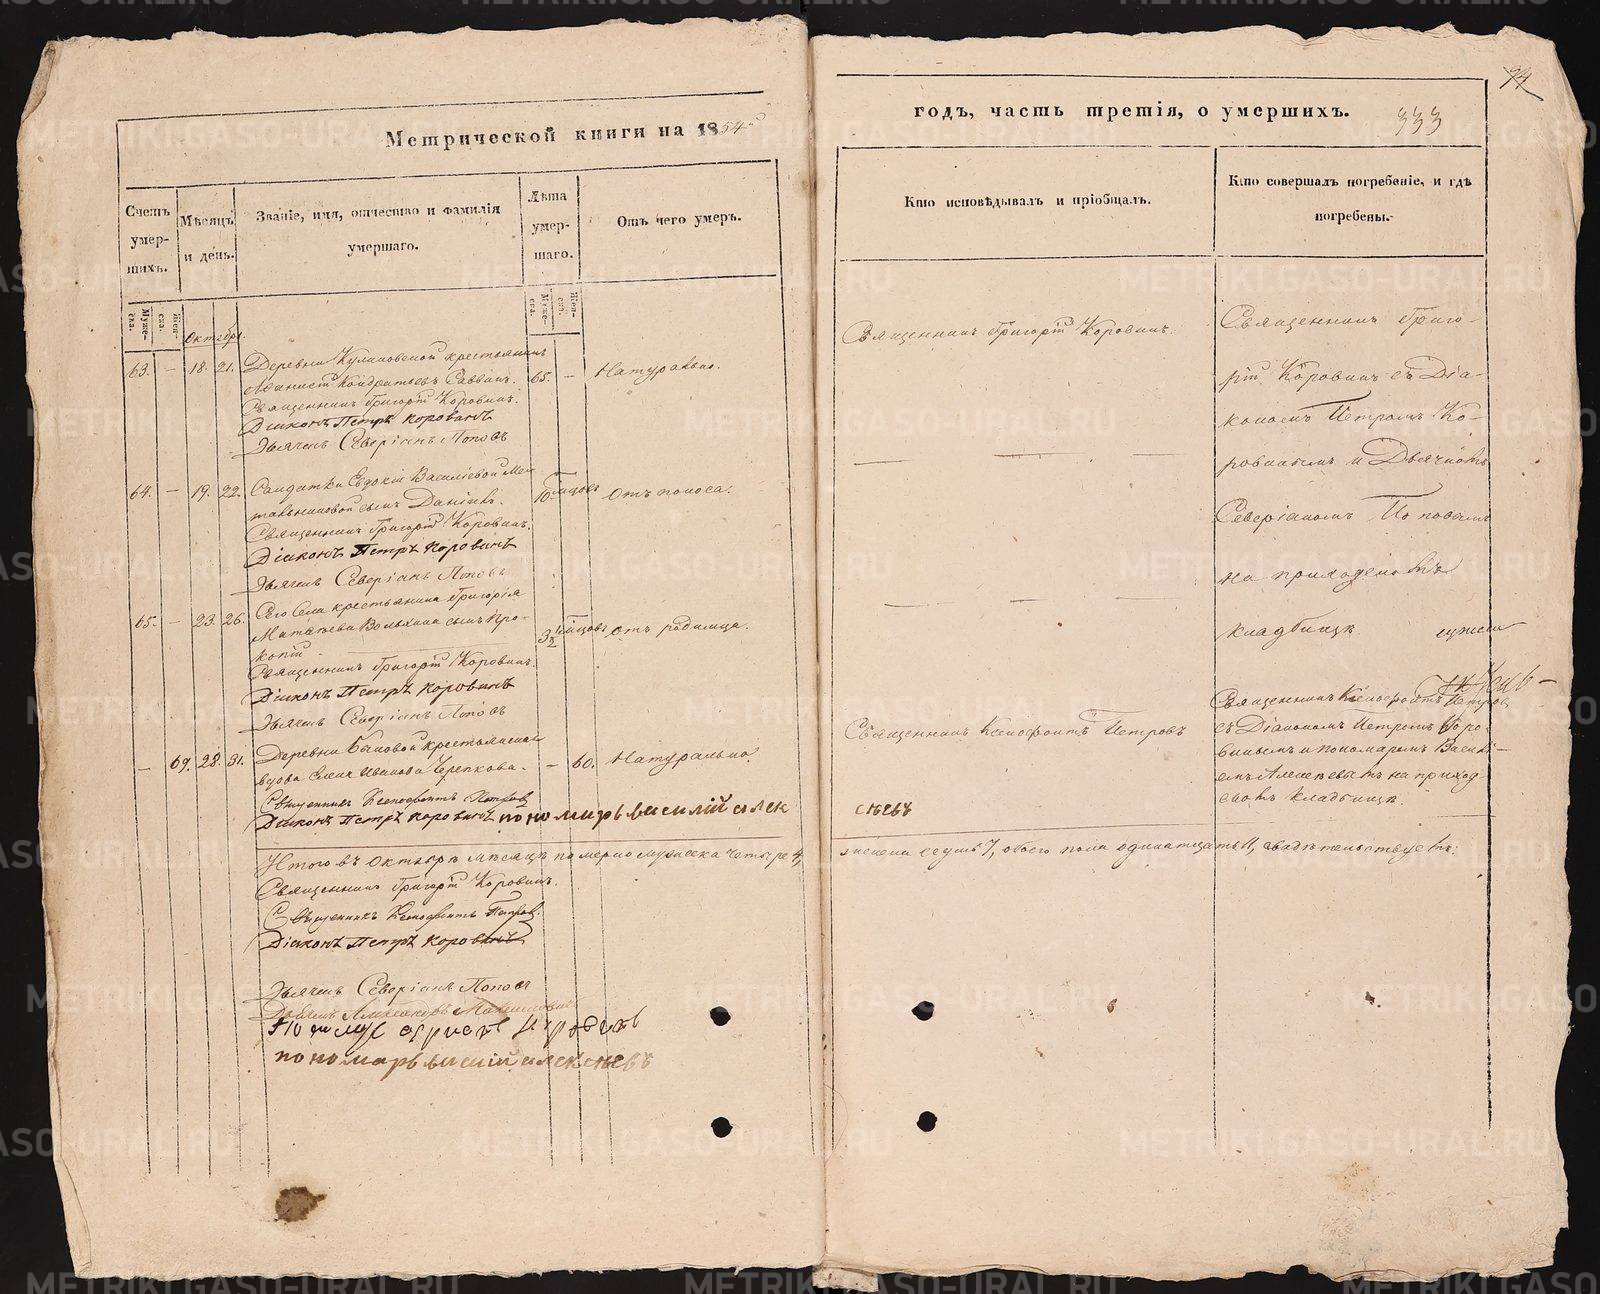 Метрической книги на 1854й
годъ, часть третія, о умершихъ.
333
94
Счетъ умер-шихъ.
Мѣсяцъ и день.
Званіе, имя, отчество и фамилія
умершаго.
Лѣта умер-шаго.
Отъ чего умеръ.
Кто исповѣдывалъ и пріобщалъ.
Кто совершалъ погребеніе, и гдѣ
погребены.
Муже-ска.
Жен-ска.
Муже-ска.
Жен-ска.
Октябрь.
63. — 18. 21. Деревни Куликовской крестьянинъ
Кондратьевъ Саввинъ. 65. — Натурально.
Священникъ Григорій Коровинъ.
Діаконъ Петръ Коровинъ
Дьячекъ Северіанъ Поповъ
64. — 19. 22. Солдатки Евдокіи Василіевой
сынъ Даніилъ. 10 мѣсцовъ Отъ поноса.
Священникъ Григорій Коровинъ.
Діаконъ Петръ Коровинъ
Дьячекъ Северіанъ Поповъ
65. — 23. 26. Сего Села крестьянина Григорія
сынъ Про-
копій 3½ мѣсцовъ Отъ родимца.
Священникъ Григорій Коровинъ.
Діаконъ Петръ Коровинъ
Дьячекъ Северіанъ Поповъ
— 69. 28. 31. Деревни Быковой крестьянская
вдова Елена Иванова Черепкова. — 60. Натурально.
Священникъ Ксенофонтъ Петровъ
Діаконъ Петръ Коровинъ пономарь василій алек
сѣевъ
Священникъ Григорій Коровинъ.
Священникъ Ксенофонтъ Петровъ
Священникъ Григо-
рій Коровинъ съ Діа-
кономъ Петромъ Ко-
ровинымъ и Дьячкомъ
Северіаномъ Поповымъ
на приходскомъ
кладбищѣ.
Священникъ Ксенофонтъ Петровъ
съ Діакономъ Петромъ Коро-
винымъ и пономаремъ Васили-
емъ Алексѣевымъ на приход-
скомъ кладбищѣ.
Итого въ Октябрѣ мѣсяцѣ померло мужеска четыре 4,
женска седмь 7, обоего пола одинатцать 11, свидѣтельствуетъ:
Священникъ Григорій Коровинъ.
Священникъ Ксенофонтъ Петровъ
Діаконъ Петръ Коровинъ
Дьячекъ Северіанъ Поповъ
пономарь василій алексѣевъ
METRIKI.GASO-URAL.RU